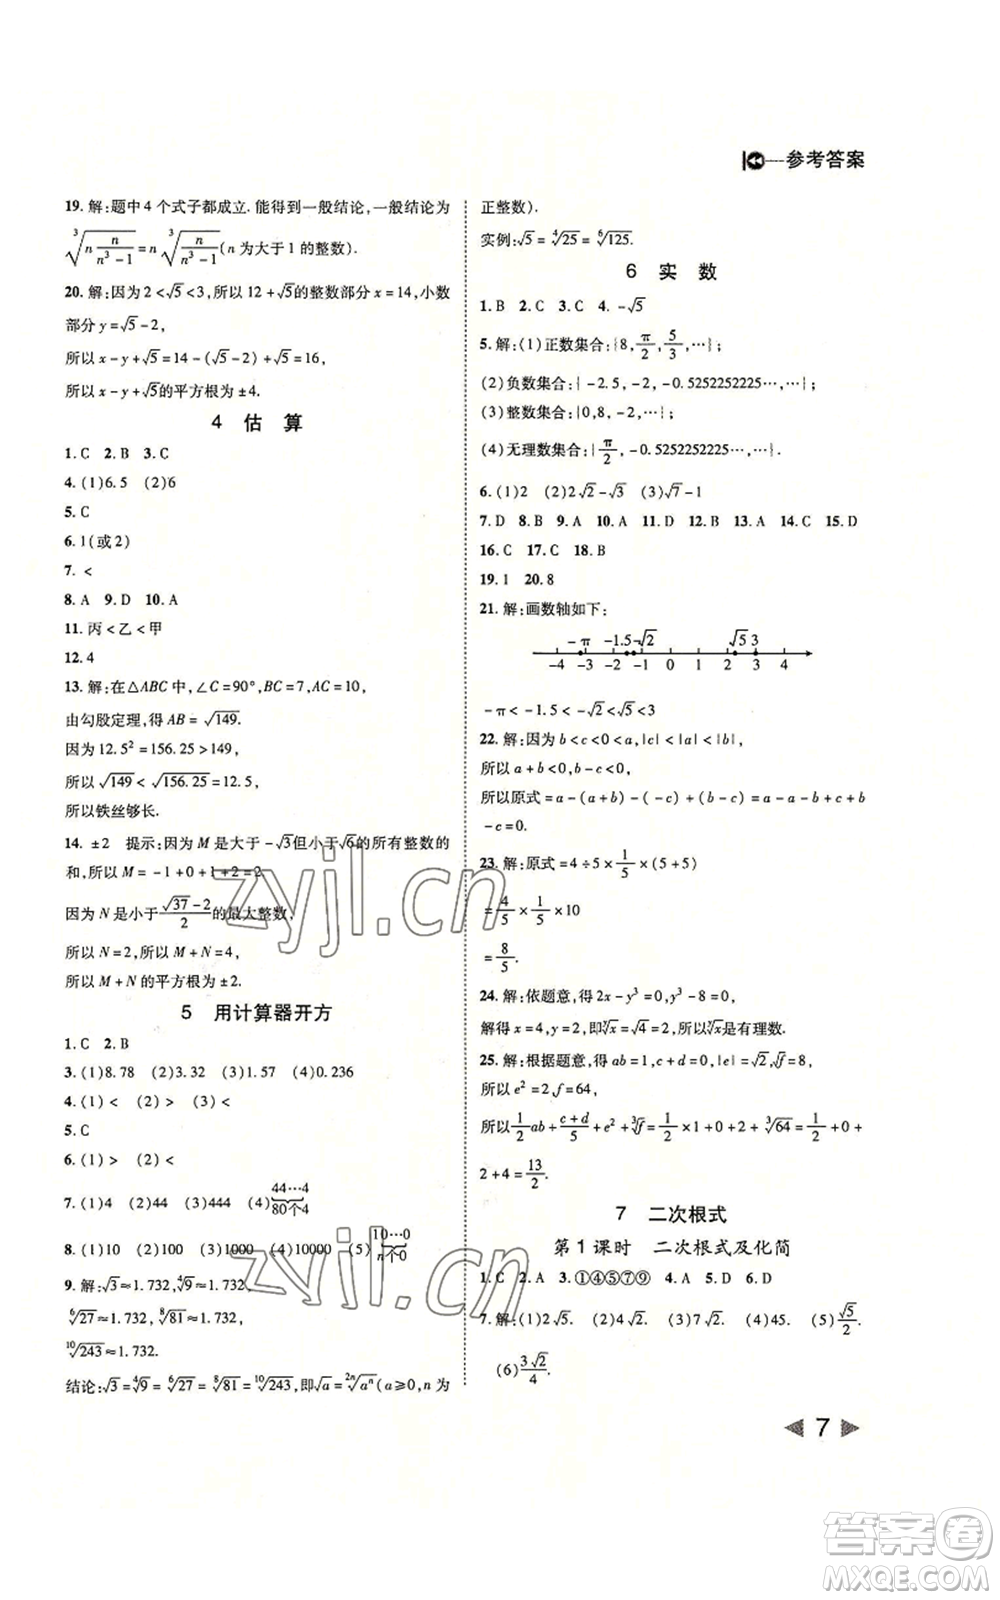 参考答案
19. 解:题中 4 个式子都成立. 能得到一般结论,一般结论为
∛(n n/(n³-1)) = n ∛(n/(n³-1)) (n 为大于 1 的整数)
20. 解:因为 2<√5<3,所以 12+√5的整数部分 x=14,小数
部分 y=√5-2,
所以 x-y+√5=14-(√5-2)+√5=16,
所以 x-y+√5的平方根为 ±4.
4 估 算
1. C 2. B 3. C
4. (1)6.5 (2)6
5. C
6. 1(或 2)
7. <
8. A 9. D 10. A
11. 丙<乙<甲
12. 4
13. 解:在△ABC 中,∠C=90°,BC=7,AC=10,
由勾股定理,得 AB=√149.
因为 12.5²=156.25>149,
所以 √149<√156.25=12.5,
所以铁丝够长.
14. ±2 提示:因为 M 是大于-√3但小于√6的所有整数的
和,所以 M=-1+0+1+2=2,
因为 N 是小于 (√37-2)/2 的最大整数,
所以 N=2,所以 M+N=4,
所以 M+N 的平方根为 ±2.
5 用计算器开方
1. C 2. B
3. (1)8.78 (2)3.32 (3)1.57 (4)0.236
4. (1)< (2)> (3)<
5. C
6. (1)> (2)<
7. (1)4 (2)44 (3)444 (4)44…4 80个4
8. (1)10 (2)100 (3)1000 (4)10000 (5)10…0 n个0
9. 解:√3≈1.732,⁴√9≈1.732,
⁶√27≈1.732,⁸√81≈1.732,
¹⁰√243≈1.732.
结论:√3=⁴√9=⁶√27=⁸√81=¹⁰√243,即√a=²ⁿ√aⁿ(a≥0,n 为
正整数).
实例:√5=⁴√25=⁶√125.
6 实 数
1. B 2. C 3. C 4. -√5
5. 解:(1)正数集合:{8,π/2,5/3,…};
(2)负数集合:{-2.5,-2,-0.5252252225…,…};
(3)整数集合:{0,8,-2,…};
(4)无理数集合:{π/2,-0.5252252225…,…}.
6. (1)2 (2)2√2-√3 (3)√7-1
7. D 8. B 9. A 10. A 11. C 12. B 13. A 14. C 15. D
16. C 17. C 18. B
19. 1 20. 8
21. 解:画数轴如下:
-π -1.5 -√2 √5 3
-4 -3 -2 -1 0 1 2 3 4
-π<-1.5<-√2<√5<3
22. 解:因为 b<c<0<a,|c|<|a|<|b|,
所以 a+b<0,b-c<0,
所以原式=a-(a+b)-(-c)+(b-c)=a-a-b+c+b
-c=0.
23. 解:原式=4÷5×1/5×(5+5)
=4/5×1/5×10
=8/5.
24. 解:依题意,得 2x-y³=0,y³-8=0,
解得 x=4,y=2,即ʸ√x=√4=2,所以ʸ√x是有理数.
25. 解:根据题意,得 ab=1,c+d=0,|e|=√2,√f=8,
所以 e²=2,f=64,
所以 1/2ab+(c+d)/5+e²+∛f=1/2×1+0+2+∛64=1/2+0+
2+4=13/2.
7 二次根式
第 1 课时 二次根式及化简
1. C 2. A 3. ①④⑤⑦⑨ 4. A 5. D 6. D
7. 解:(1)2√5. (2)4√2. (3)7√2. (4)45. (5)√5/2.
(6)3√2/4.
7
zyjl.cn
zyjl.cn
答案卷
MXQE.COM